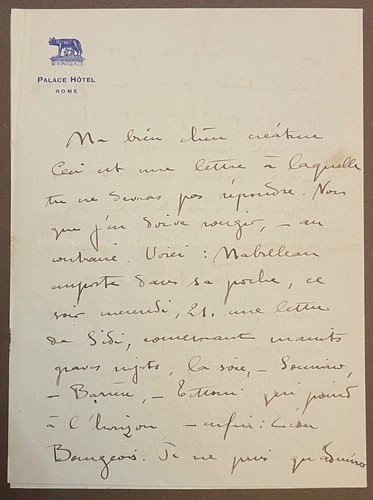 PALACE HÔTEL
ROME
Ma bien chère créature
Ceci est une lettre à laquelle
tu ne devras pas répondre. Non
que j'en doive rougir, – au
contraire. Voici : Mabilleau
emporte dans sa poche, ce
soir mercredi, 21, une lettre
de Sidi, concernant maints
graves sujets, la soie, – Sonnino,
– Barrère, – Tittoni, qui point
à l'horizon – enfin : Léon
Bourgeois. Je ne puis qu'admirer